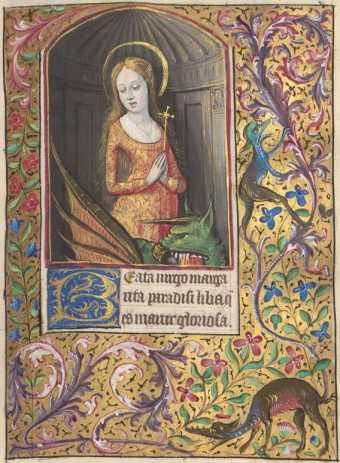 Beata virgo marga
rita paradisi lilia q
es martir gloriosa.